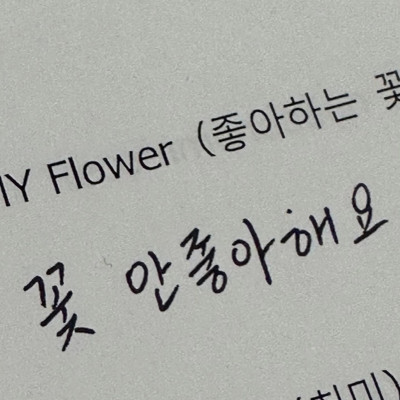 IY Flower (좋아하는 꽃
꽃 안좋아해요
(취미)